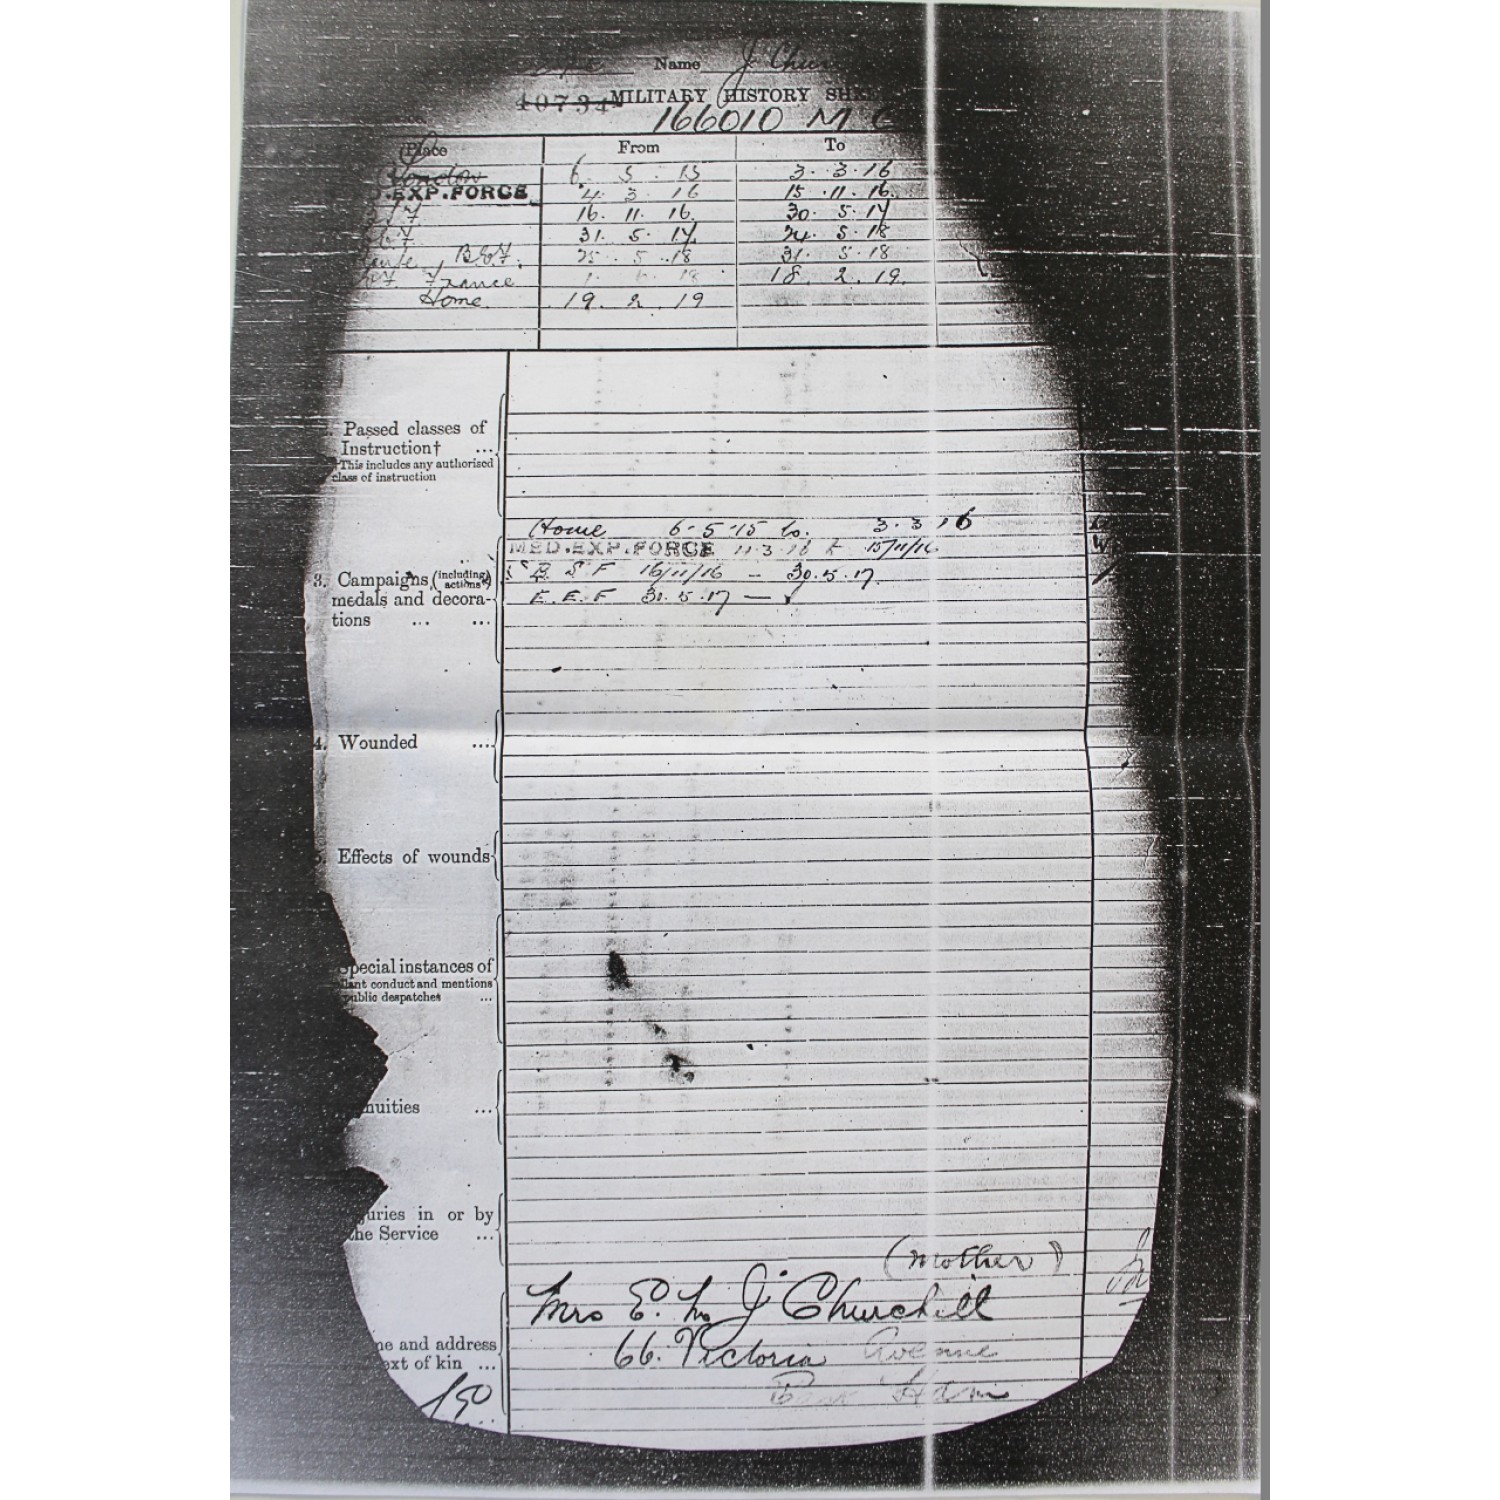 Name J Chur
40734 MILITARY HISTORY SHEE
166010 M G
Place From To
6 . 5 . 15 3 . 3 . 16
D.EXP.FORCE 4 . 3 . 16 15 . 11 . 16.
16 . 11 . 16. 30 . 5 . 17
31 . 5 . 17. 24 . 5 . 18
B.E.F. 25 . 5 . 18 31 . 5 . 18
France 1 . 6 . 18 18 . 2 . 19.
Home 19 . 2 . 19
Passed classes of
Instruction† ...
†This includes any authorised
class of instruction
Home 6-5-15 to. 3.3.16
MED.EXP.FORCE 4.3.16 15/11/16
3. Campaigns (including actions)
B S F 16/11/16 — 30.5.17.
medals and decora-
E.E.F 31.5.17 —
tions ... ...
4. Wounded ...
Effects of wounds
Special instances of
llant conduct and mentions
public despatches ...
nuities ...
juries in or by
the Service ...
(Mother)
Mrs E. M J Churchill
me and address
66. Victoria Avenue
ext of kin ...
Ham